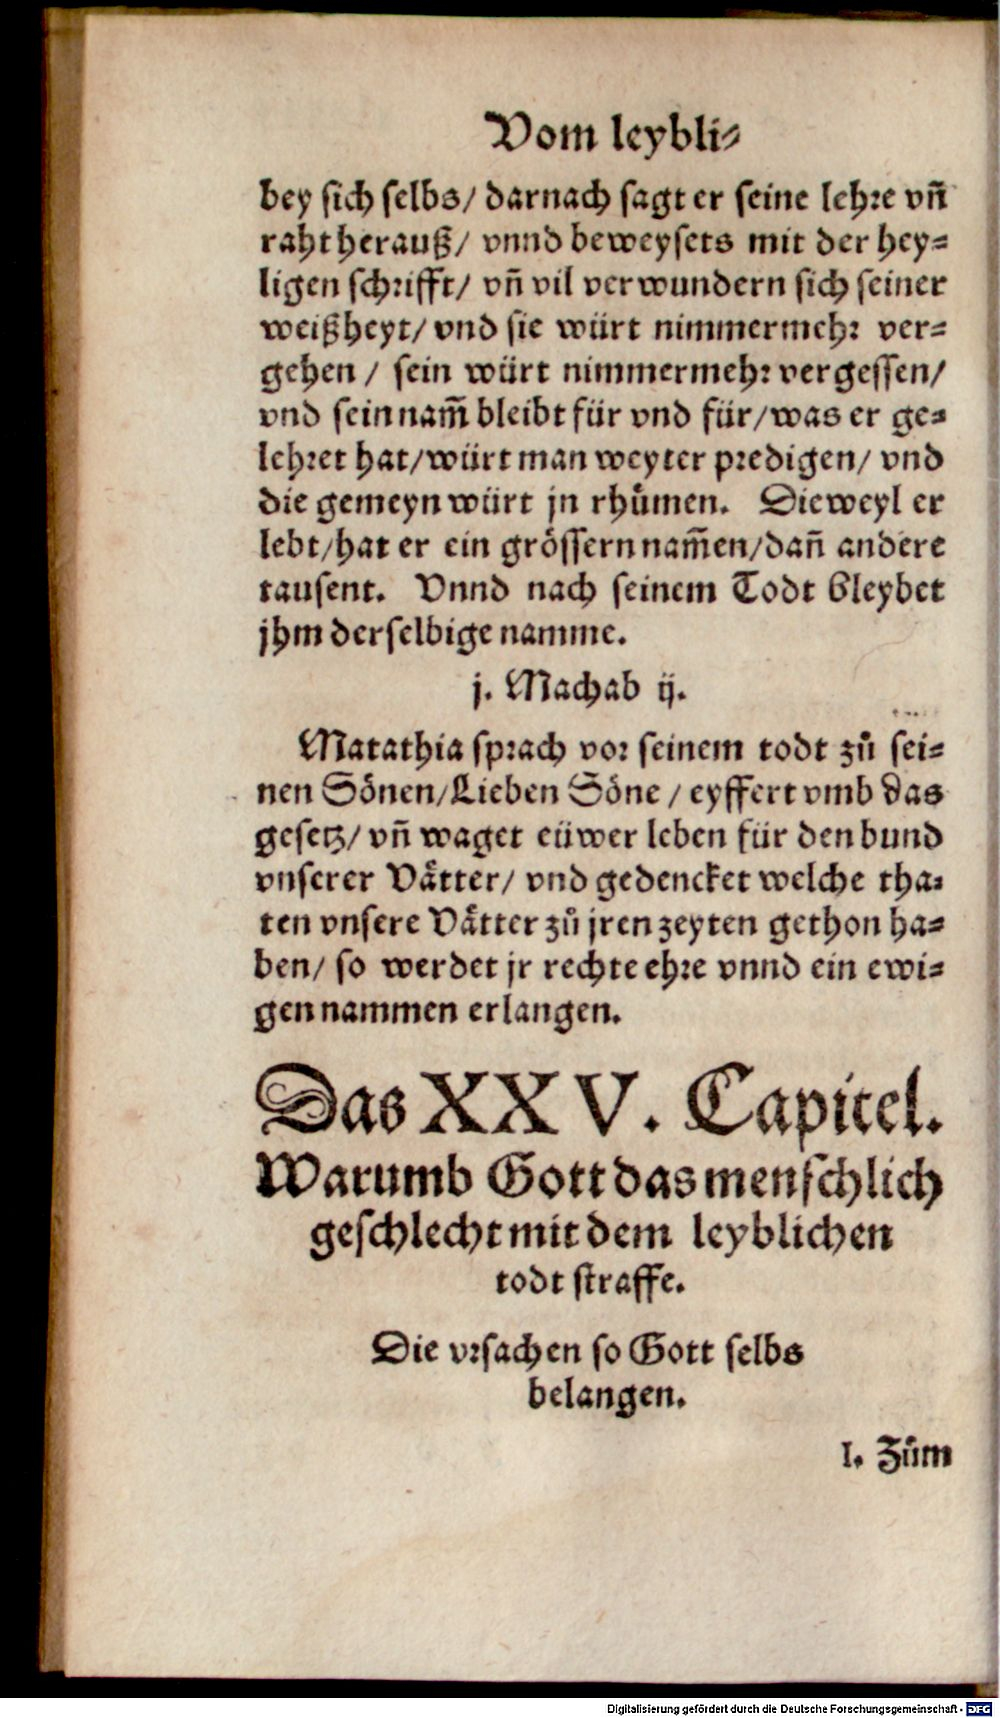 Vom leybli⸗
bey sich selbs/ darnach sagt er seine lehre vñ
raht herauß/ vnnd beweysets mit der hey⸗
ligen schrifft/ vñ vil verwundern sich seiner
weißheyt/ vnd sie würt nimmermehr ver⸗
gehen / sein würt nimmermehr vergessen/
vnd sein nam̄ bleibt für vnd für/ was er ge⸗
lehret hat/ würt man weyter predigen/ vnd
die gemeyn würt jn rhůmen. Dieweyl er
lebt/ hat er ein grössern nam̄en/ dañ andere
tausent. Vnnd nach seinem Todt bleybet
jhm derselbige namme.
j. Machab ij.
Matathia sprach vor seinem todt zů sei⸗
nen Sönen/ Lieben Söne / eyffert vmb das
gesetz/ vñ waget eüwer leben für den bund
vnserer Vätter/ vnd gedencket welche tha⸗
ten vnsere Vätter zů jren zeyten gethon ha⸗
ben/ so werdet jr rechte ehre vnnd ein ewi⸗
gen nammen erlangen.
Das XXV. Capitel.
Warumb Gott das menschlich
geschlecht mit dem leyblichen
todt straffe.
Die vrsachen so Gott selbs
belangen.
I. Zům
Digitalisierung gefördert durch die Deutsche Forschungsgemeinschaft - DFG